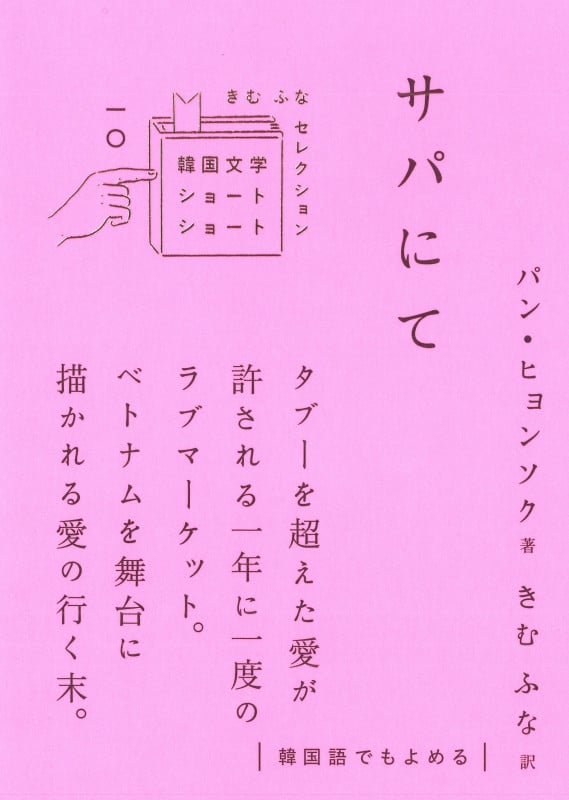 サパにて
パン・ヒョンソク 著 きむ ふな 訳
きむ ふな セレクション
一〇
韓国文学
ショート
ショート
タブーを超えた愛が
許される一年に一度の
ラブマーケット。
ベトナムを舞台に
描かれる愛の行く末。
韓国語でもよめる